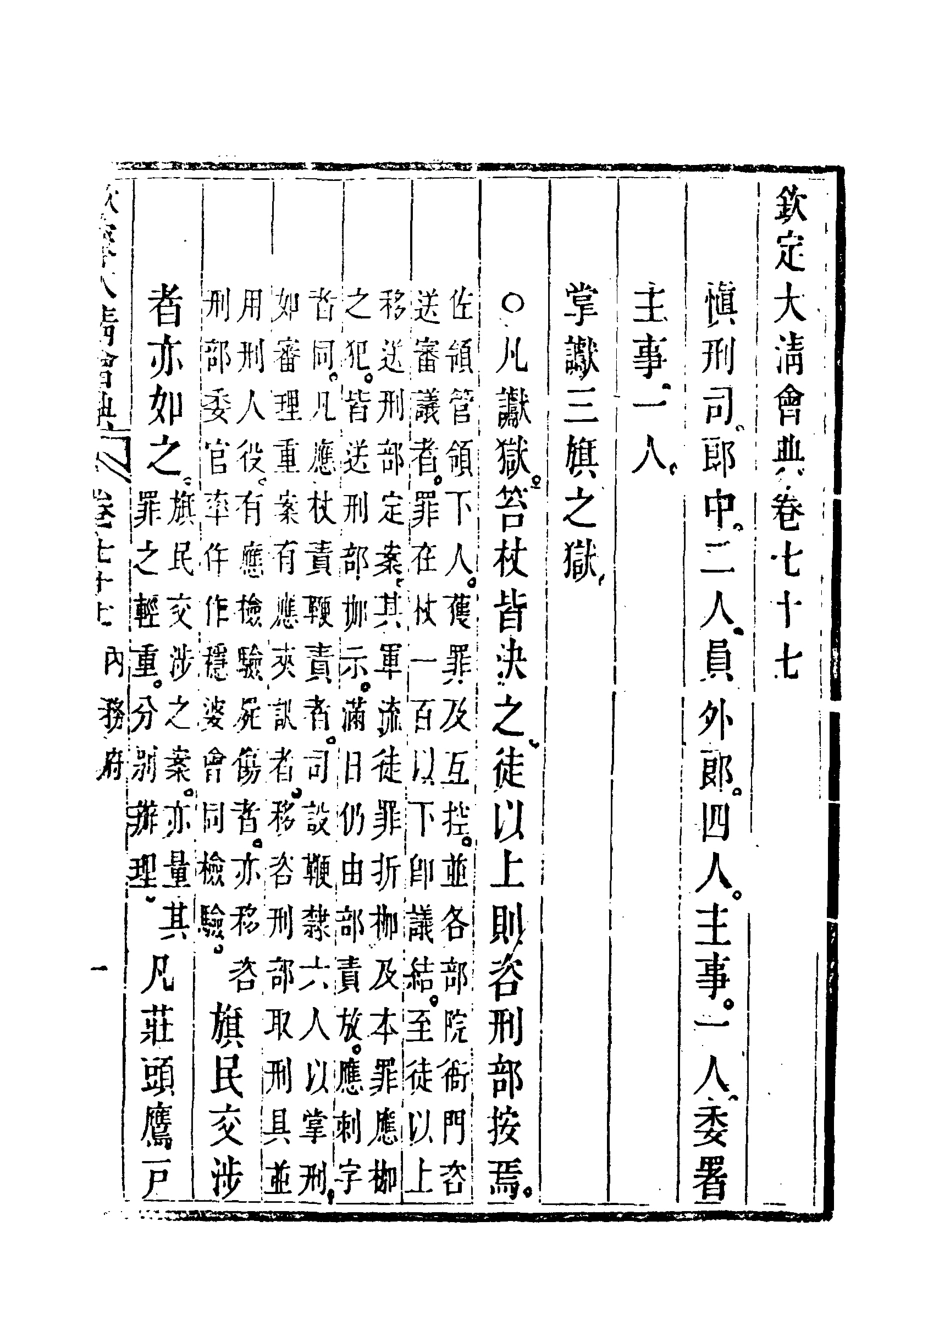 欽定大清會典卷七十七
慎刑司。郎中。二人。員外郎。四人。主事。一人。委署
主事。一人。
掌讞三旗之獄。
○凡讞獄。笞杖皆決之。徒以上則咨刑部按焉。
佐領管領下人。獲罪及互控。並各部院衙門咨
送審議者。罪在杖一百以下卽議結。至徒以上
移送刑部定案。其軍流徒罪折枷及本罪應枷
之犯。皆送刑部枷示。滿日仍由部責放。應刺字
者同。凡應杖責鞭責者。司設鞭隸六人以掌刑。
如審理重案有應夾訊者。移咨刑部取刑具並
用刑人役。有應檢驗屍傷者。亦移咨
刑部委官率仵作穩婆會同檢驗。
旗民交涉
者亦如之。
旗民交涉之案。亦量其
罪之輕重。分別辦理。
凡莊頭鷹戶
大清會典
卷七十七
內務府
一